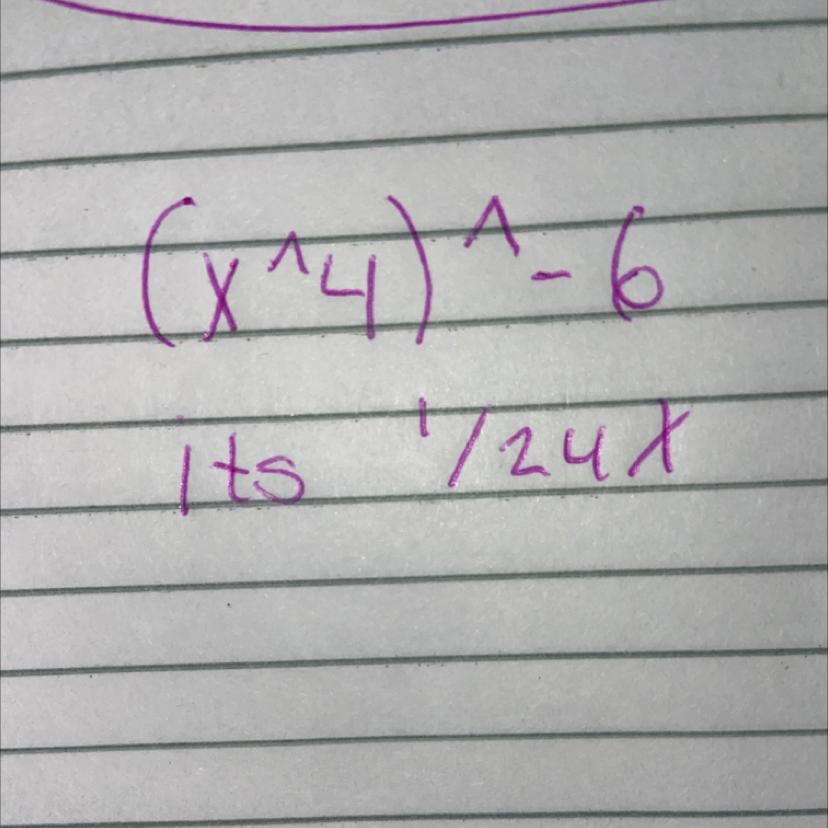 (x^4)^-6
its 1/24x